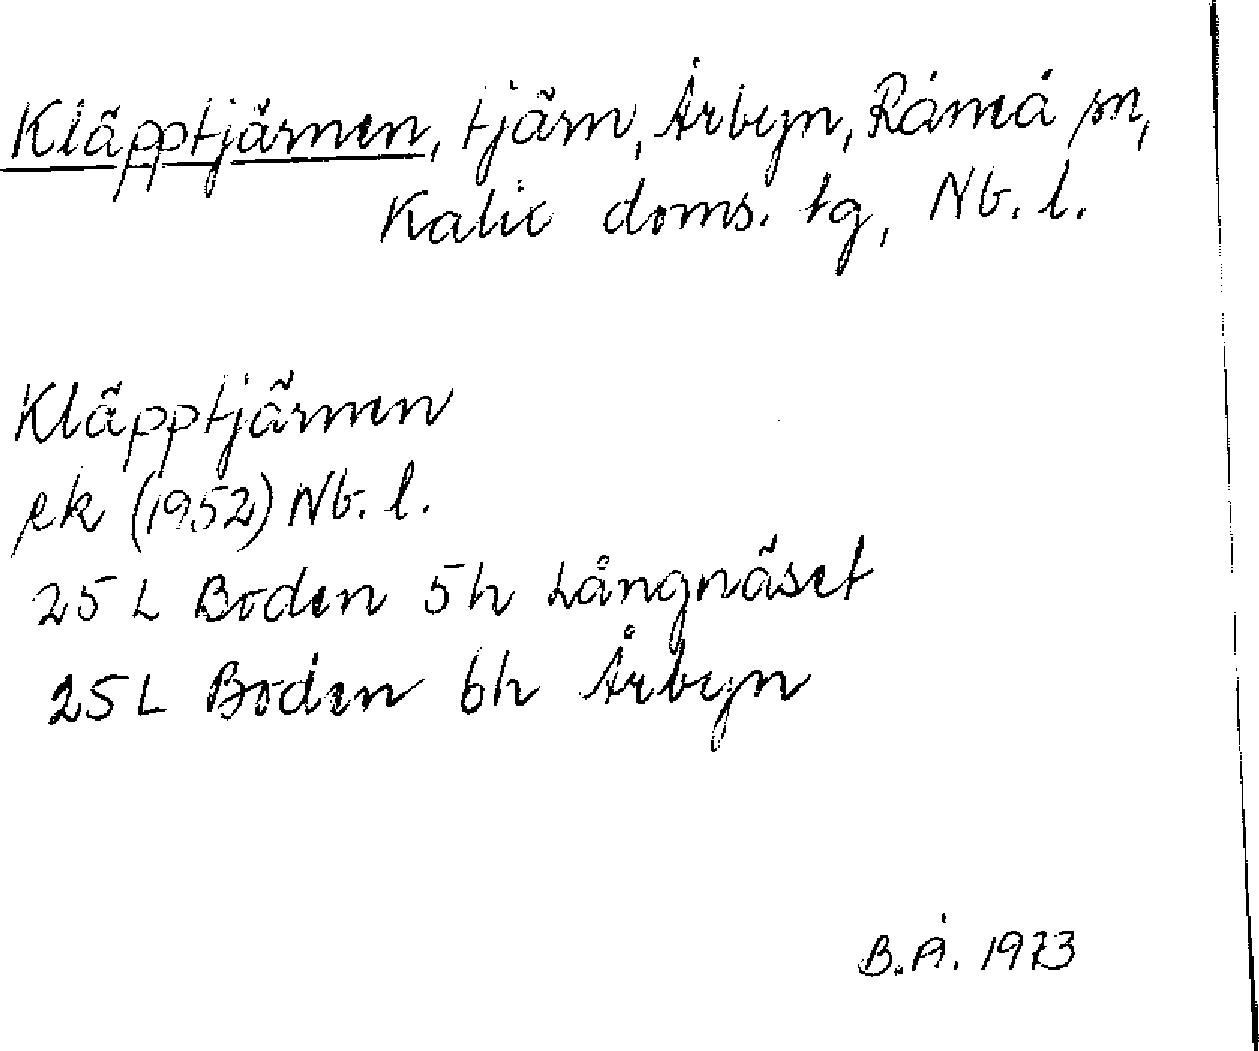 Kläpptjärnen, tjärn, Årbyn, Råneå sn,
Kalix doms. tg, Nb. l.
Kläpptjärnen
ek (1952) Nb. l.
25 L Boden 5h Långnäset
25 L Boden 6h Årbyn
B.Å. 1973